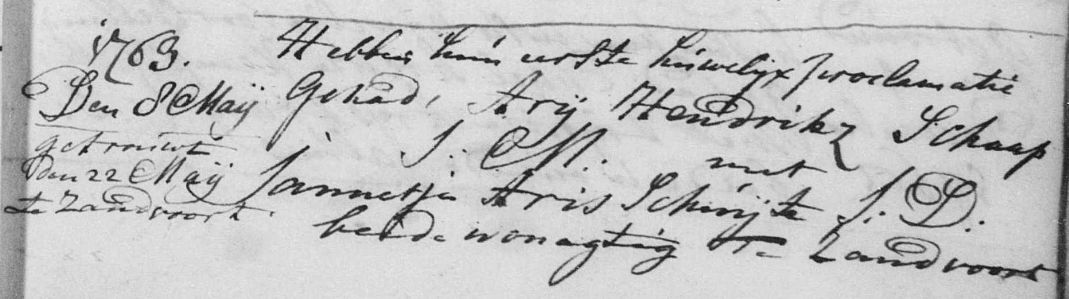 1763.
Den 8 Maÿ
getrouwt
Den 22 Maÿ
te Zandvoort.
Hebben hun eerste huwelijx proclamatie
Gehad, Arÿ Hendrikz Schaap
J: M. met
Jannetje Aris Schuÿte J: D:
beide wonagtig te Zandvoort